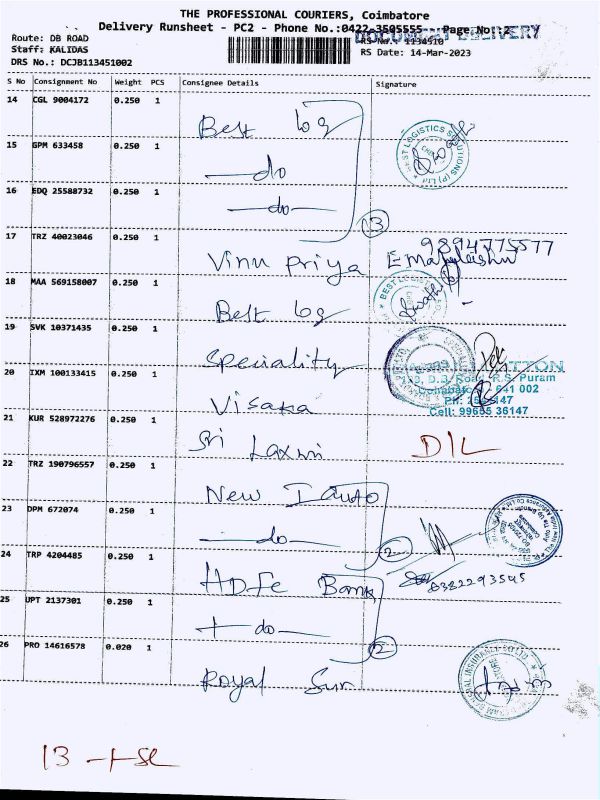 THE PROFESSIONAL COURIERS, Coimbatore
Delivery Runsheet - PC2 - Phone No.:0422-3505555 Page No.:2
DOCUMENT DELIVERY
Route: DB ROAD
RS No.: 1134510
Staff: KALIDAS
RS Date: 14-Mar-2023
DRS No.: DCJB113451002
S No Consignment No Weight PCS Consignee Details Signature
14 CGL 9004172 0.250 1
Best log
15 GPM 633458 0.250 1
BEST LOGISTICS SOLUTIONS (P) LTD
-do-
16 EDQ 25588732 0.250 1
-do-
3
17 TRZ 40023046 0.250 1
9894775577
Vinu Priya
18 MAA 569158007 0.250 1
Best log
19 SVK 10371435 0.250 1
Speciality
20 IXM 100133415 0.250 1
D.B. Road, R.S. Puram
Coimbatore - 641 002
Cell: 99655 36147
Visaka
21 KUR 528972276 0.250 1
Sri Laxmi
DIL
22 TRZ 190796557 0.250 1
New I auto
23 DPM 672074 0.250 1
-do-
2
24 TRP 4204485 0.250 1
HDFC Bank
25 UPT 2137301 0.250 1
-do-
2
26 PRO 14616578 0.020 1
Royal Sun
13